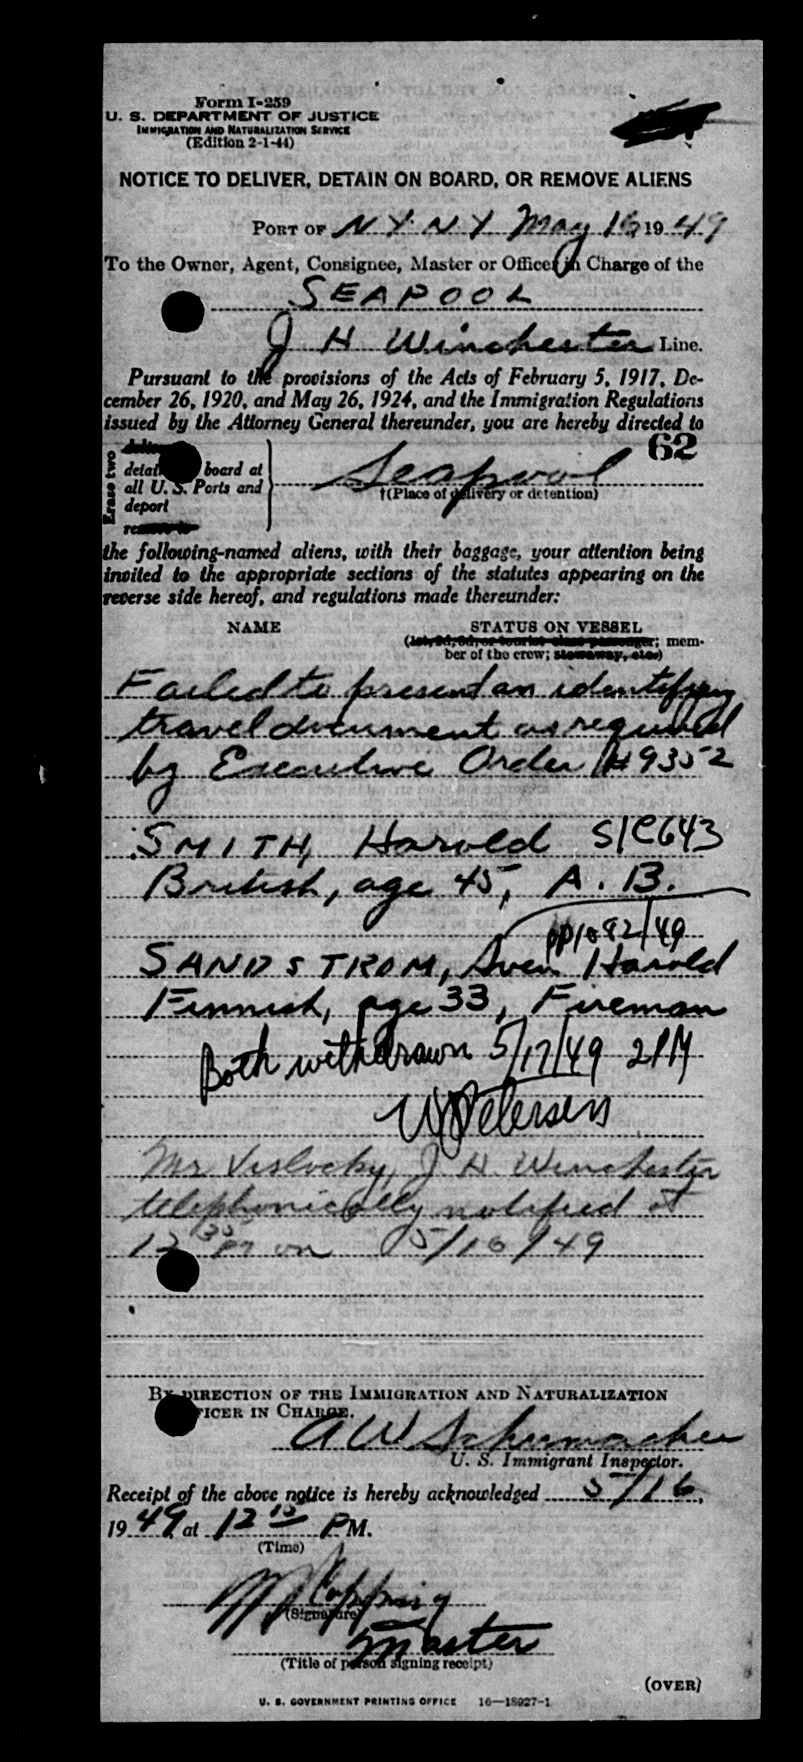 Form I-259
U. S. DEPARTMENT OF JUSTICE
IMMIGRATION AND NATURALIZATION SERVICE
(Edition 2-1-44)
NOTICE TO DELIVER, DETAIN ON BOARD, OR REMOVE ALIENS
PORT OF N.Y. N.Y. May 16 1949
To the Owner, Agent, Consignee, Master or Officer in Charge of the
SEAPOOL
J H Winchester Line.
Pursuant to the provisions of the Acts of February 5, 1917, De-
cember 26, 1920, and May 26, 1924, and the Immigration Regulations
issued by the Attorney General thereunder, you are hereby directed to
62
Erase two
board at
all U. S. Ports and
deport
Seapool
†(Place of delivery or detention)
the following-named aliens, with their baggage, your attention being
invited to the appropriate sections of the statutes appearing on the
reverse side hereof, and regulations made thereunder:
NAME STATUS ON VESSEL
(1st, 2d, 3d, or tourist class passenger; mem-
ber of the crew; stowaway, etc.)
Failed to present an identifying
travel document as required
by Executive Order #9352
SMITH, Harold S/C643
British, age 45, A.B.
SANDSTROM, Sven Harold
Finnish, age 33, Fireman
Both withdrawn 5/17/49 2PM
Petersen
Mr Vislocky, J H Winchester
telephonically notified at
12 30 PM on 5/16/49
BY DIRECTION OF THE IMMIGRATION AND NATURALIZATION
OFFICER IN CHARGE.
A W Schumacher
U. S. Immigrant Inspector.
Receipt of the above notice is hereby acknowledged 5/16,
1949 at 12 15 PM.
(Time)
Copping
(Signature)
Master
(Title of person signing receipt)
(OVER)
U. S. GOVERNMENT PRINTING OFFICE 16—18927-1